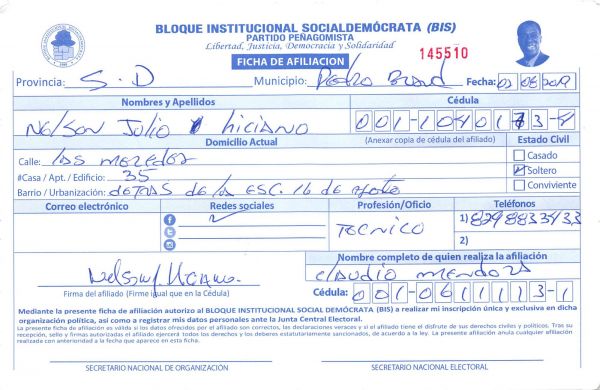 BLOQUE INSTITUCIONAL SOCIALDEMÓCRATA (BIS)
PARTIDO PEÑAGOMISTA
Libertad, Justicia, Democracia y Solidaridad
FICHA DE AFILIACION
145510
Provincia: S.D Municipio: Pedro Brand Fecha: 03 08 2019
Nombres y Apellidos Cédula
Nelson Julio Liciano 001-1040173-8
Domicilio Actual (Anexar copia de cédula del afiliado) Estado Civil
Calle: Las Mercedes
Casado
#Casa / Apt. / Edificio: 35
Soltero
Barrio / Urbanización: detras de la ESC. 16 de Agosto
Conviviente
Correo electrónico Redes sociales Profesión/Oficio Teléfonos
Tecnico
1) 8298833433
2)
Nelson J Liciano.
Nombre completo de quien realiza la afiliación
Claudio Mendoza
Firma del afiliado (Firme igual que en la Cédula)
Cédula: 001-0611113-1
Mediante la presente ficha de afiliación autorizo al BLOQUE INSTITUCIONAL SOCIAL DEMÓCRATA (BIS) a realizar mi inscripción única y exclusiva en dicha
organización política, así como a registrar mis datos personales ante la Junta Central Electoral.
La presente ficha de afiliación es válida si los datos ofrecidos por el afiliado son correctos, las declaraciones veraces y si el afiliado tiene el disfrute de sus derechos civiles y políticos. Tras su
recepción, sello y firmas autorizadas el afiliado ejercerá todos los derechos y los deberes estatutariamente sancionados, de acuerdo a la ley. La presente afiliación anula cualquier afiliación
realizada con anterioridad a la fecha que aparece en esta ficha.
SECRETARIO NACIONAL DE ORGANIZACIÓN SECRETARIO NACIONAL ELECTORAL